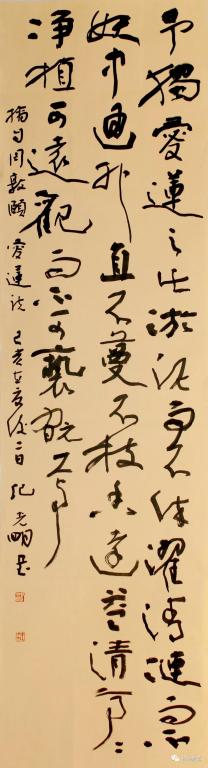 予獨愛蓮之出淤泥而不染濯清漣而不
妖中通外直不蔓不枝香遠益清亭〻
淨植可遠觀而不可褻翫焉
摘句周敦頤愛蓮說 己亥立夏後二日 紀光明書